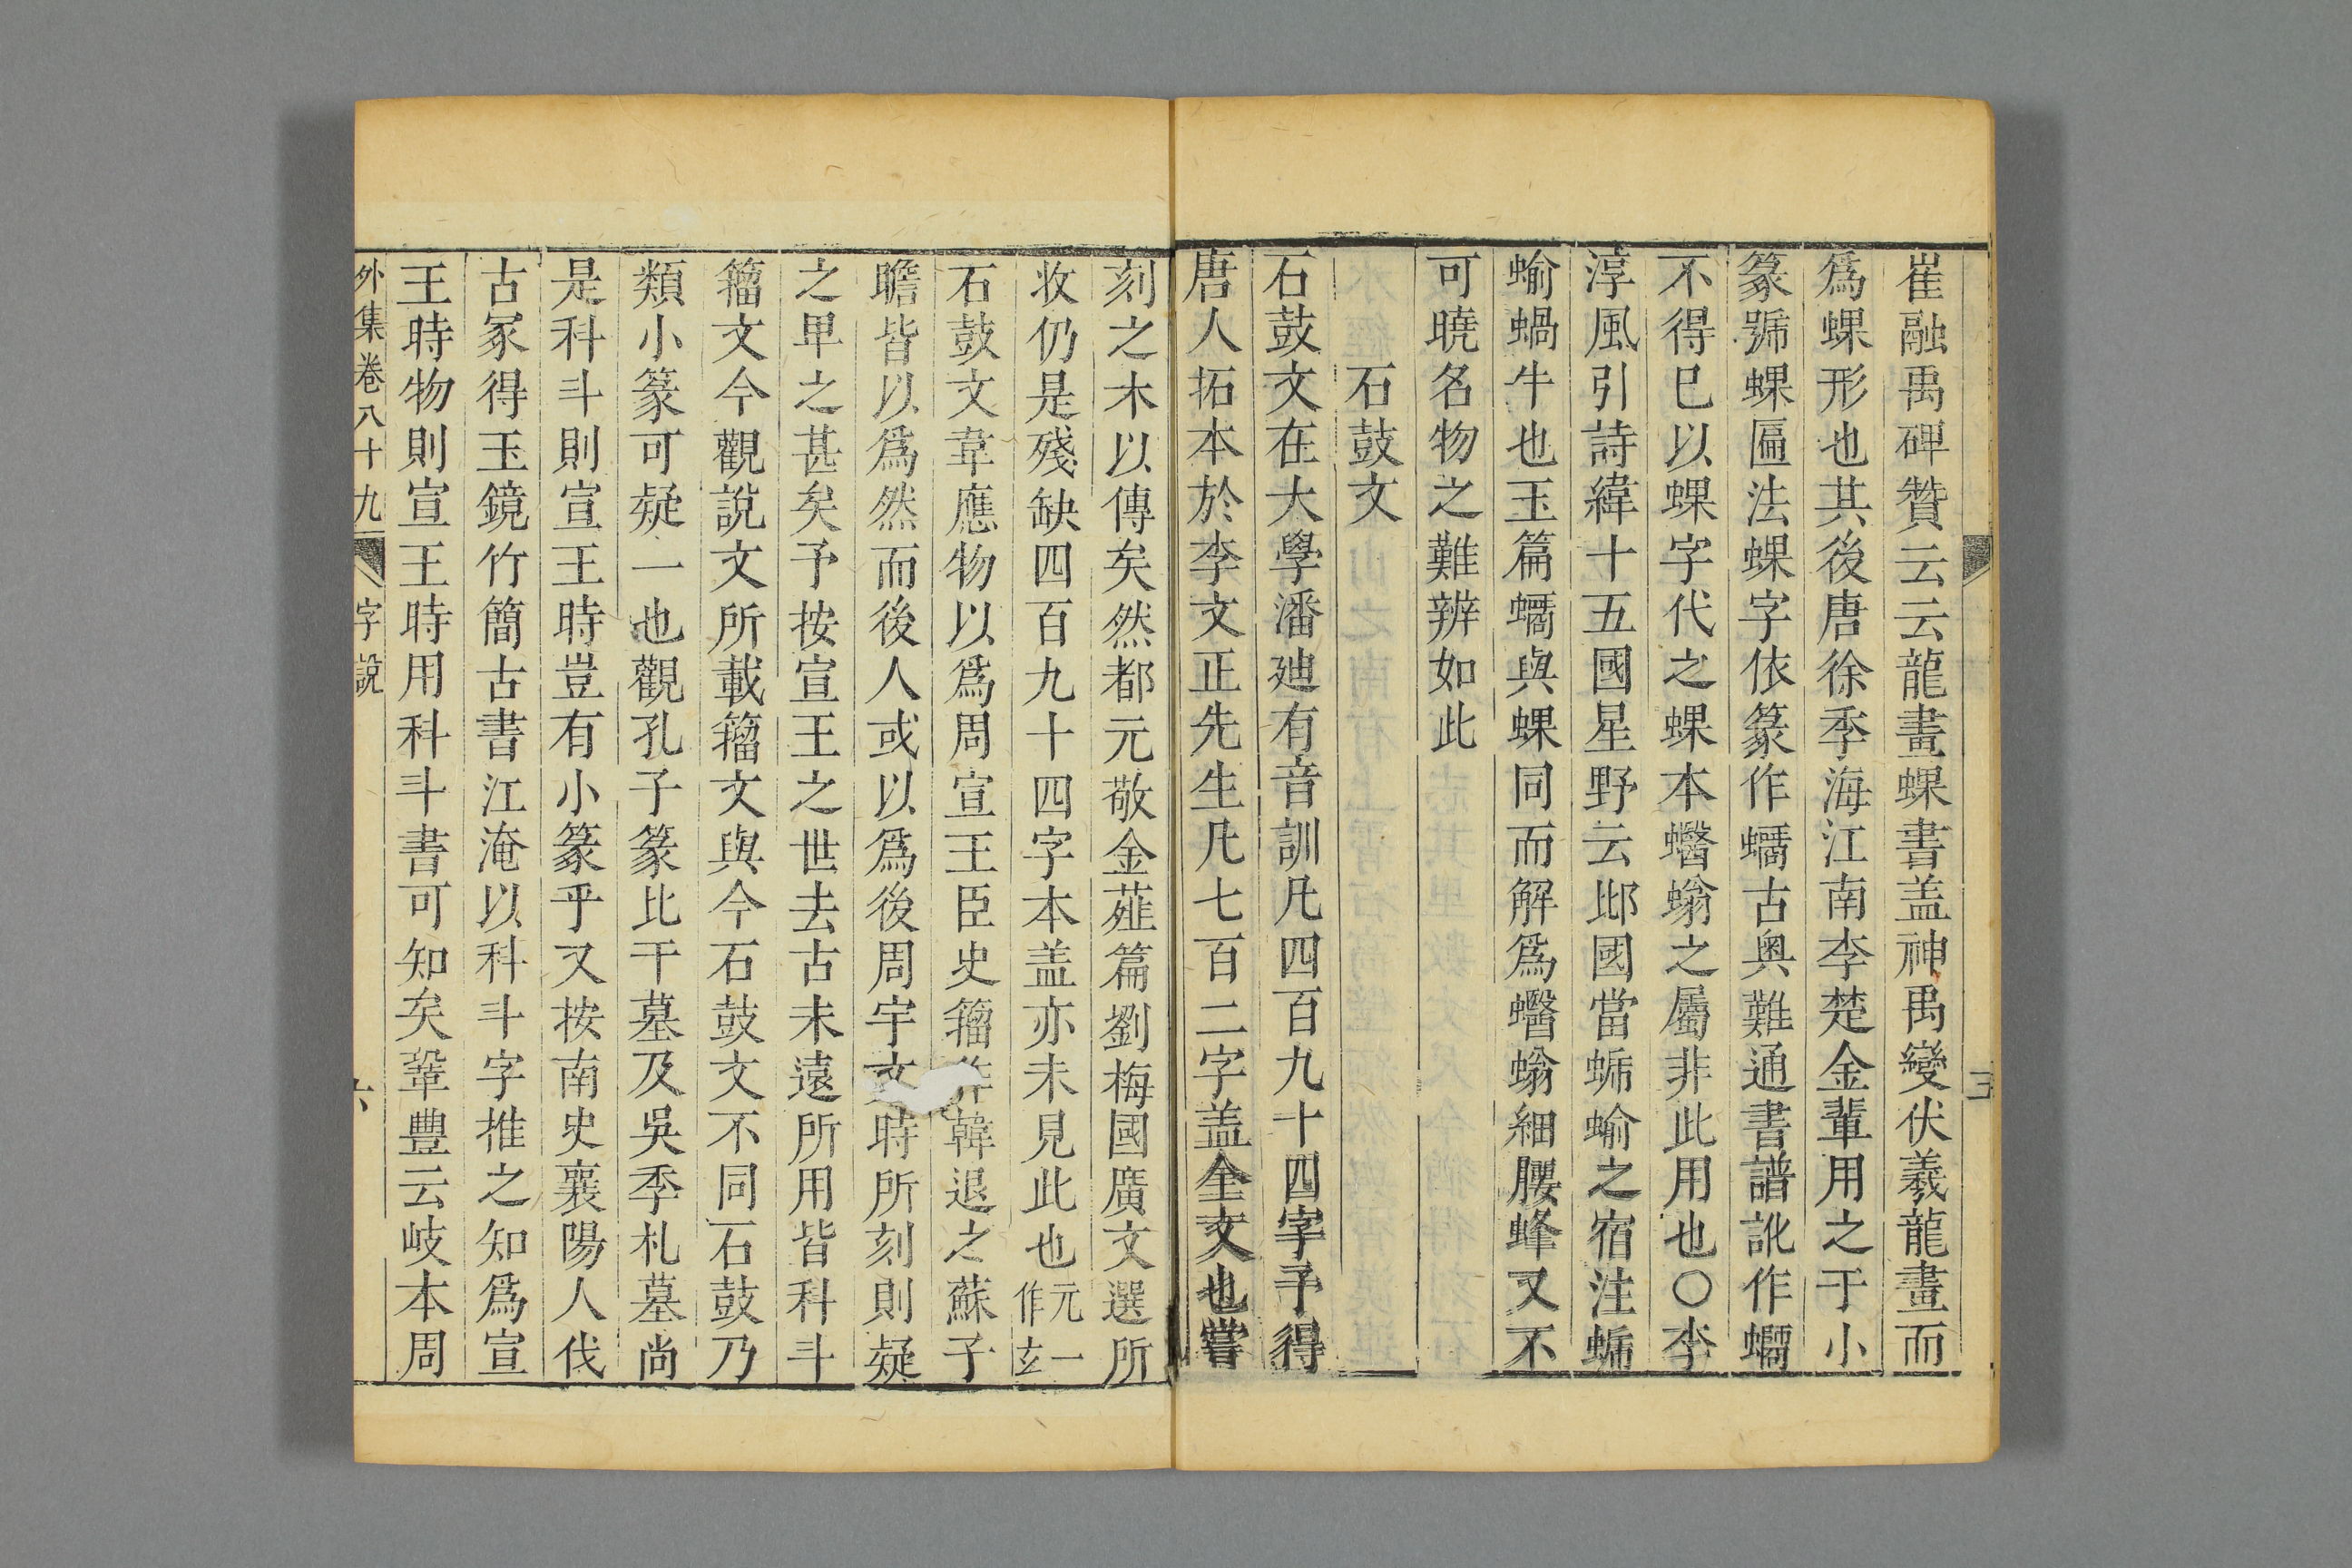 崔融禹碑贊云云龍畫螺書盖神禹變伏羲龍畫而
爲螺形也其後唐徐季海江南李楚金輩用之于小
篆號螺匾法螺字依篆作蠕古奥難通書譜訛作蠕
不得已以螺字代之螺本蠮螉之屬非此用也〇李
淳風引詩緯十五國星野云邶國當蝂蝓之宿注蝂
蝓蝸牛也玉篇蠕與螺同而解爲蠮螉細腰蜂又不
可曉名物之難辨如此
石鼓文
石鼓文在大學潘廸有音訓凡四百九十四字予得
唐人拓本於李文正先生凡七百二字盖全文也嘗
刻之木以傳矣然都元敬金薤篇劉梅國廣文選所
收仍是殘缺四百九十四字本盖亦未見此也元一作玄
石鼓文韋應物以爲周宣王臣史籀作韓退之蘇子
瞻皆以爲然而後人或以爲後周宇文時所刻則疑
之甲之甚矣予按宣王之世去古未遠所用皆科斗
籀文今觀說文所載籀文與今石鼓文不同石鼓乃
類小篆可疑一也觀孔子篆比干墓及吳季札墓尚
是科斗則宣王時豈有小篆乎又按南史襄陽人伐
古冢得玉鏡竹簡古書江淹以科斗字推之知爲宣
王時物則宣王時用科斗書可知矣鞏豐云岐本周
外集卷八十九 字說 六